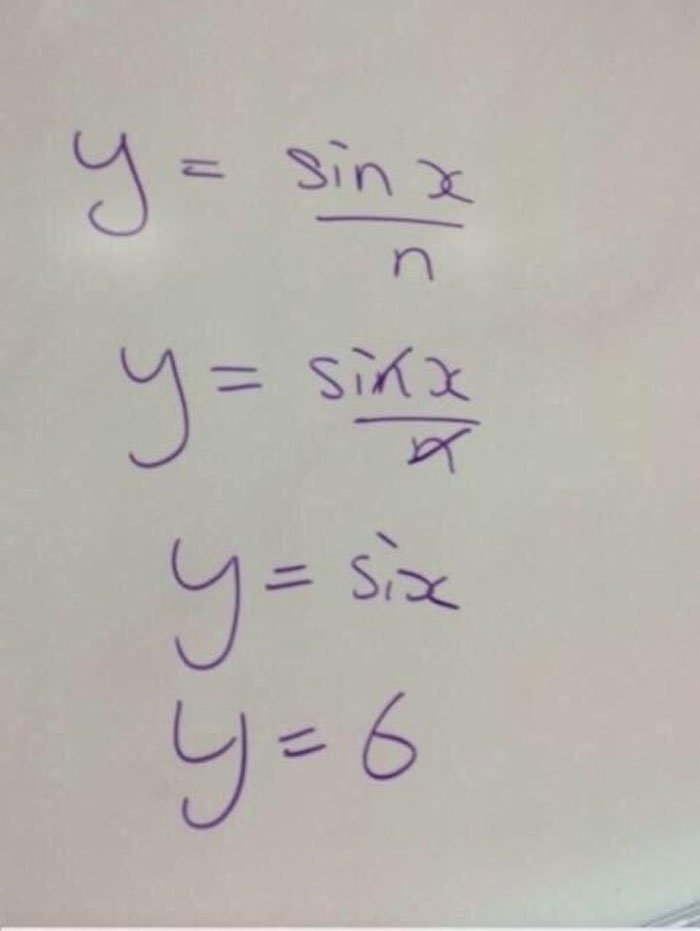 y = sin x
n
y = sin x
n
y = six
y = 6